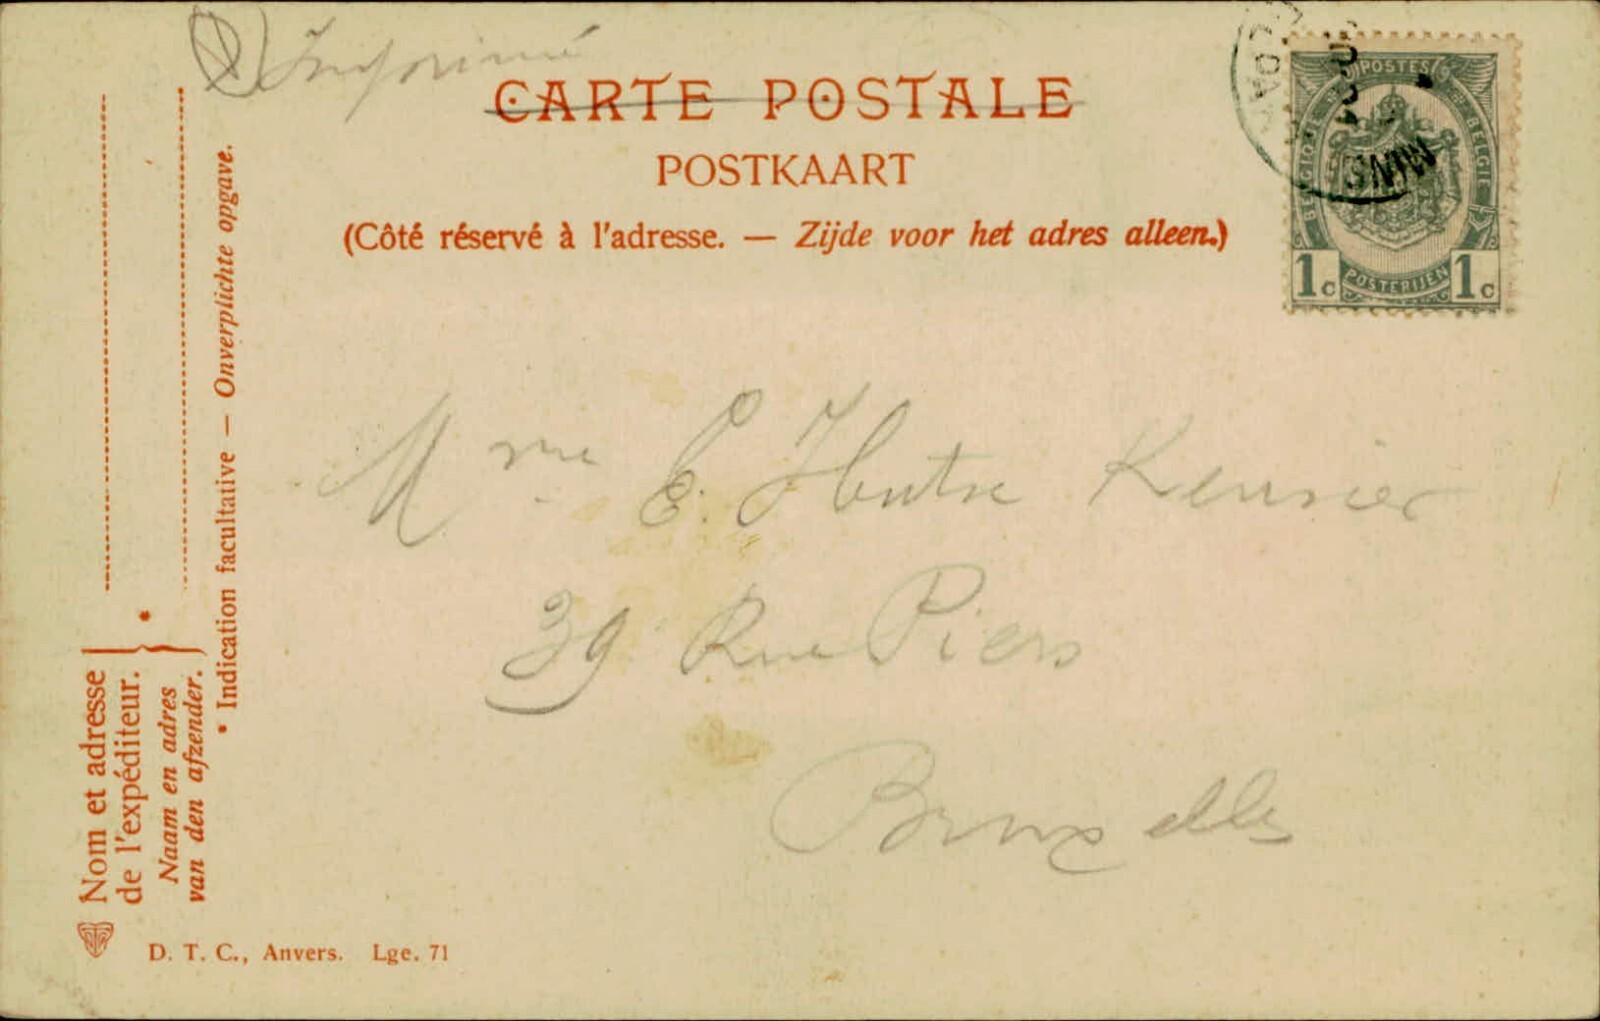 Imprimé
CARTE POSTALE
POSTKAART
(Côté réservé à l'adresse. — Zijde voor het adres alleen.)
POSTES
BELGIQUE
BELGIE
1c POSTERIJEN 1c
Mme E.
39 Rue Piers
Bruxelles
Nom et adresse
de l'expéditeur. *
Naam en adres
van den afzender.
* Indication facultative — Onverplichte opgave.
D. T. C., Anvers. Lge. 71